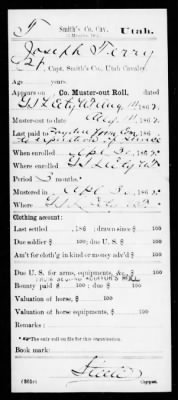 T Smith's Co. Cav. Utah.
Joseph Terry
Pt., Capt. Smith's Co., Utah Cavalry.
Age years.
Appears on Co. Muster-out Roll, dated
G S L City Aug 14, 1862.
Muster-out to date Aug 14, 186
Last paid to
to expiration of service
When enrolled Apl 30, 1862.
Where enrolled G S L City U.T.
Period 3 months.
Mustered in Apl 30, 1862.
Where G S L City U.T.
Clothing account:
Last settled , 186 ; drawn since $ 100
Due soldier $ 100; due U. S. $ 100
Am't for cloth'g in kind or money adv'd $ 100
Due U. S. for arms, equipments, &c., $ 100
FROM SECOND AUDITOR'S ROLL
Bounty paid $ 100; due $ 100
Valuation of horse, $ 100
Valuation of horse equipments, $ 100
Remarks:
*The only roll on file for this organization.
Book mark:
Copyist.